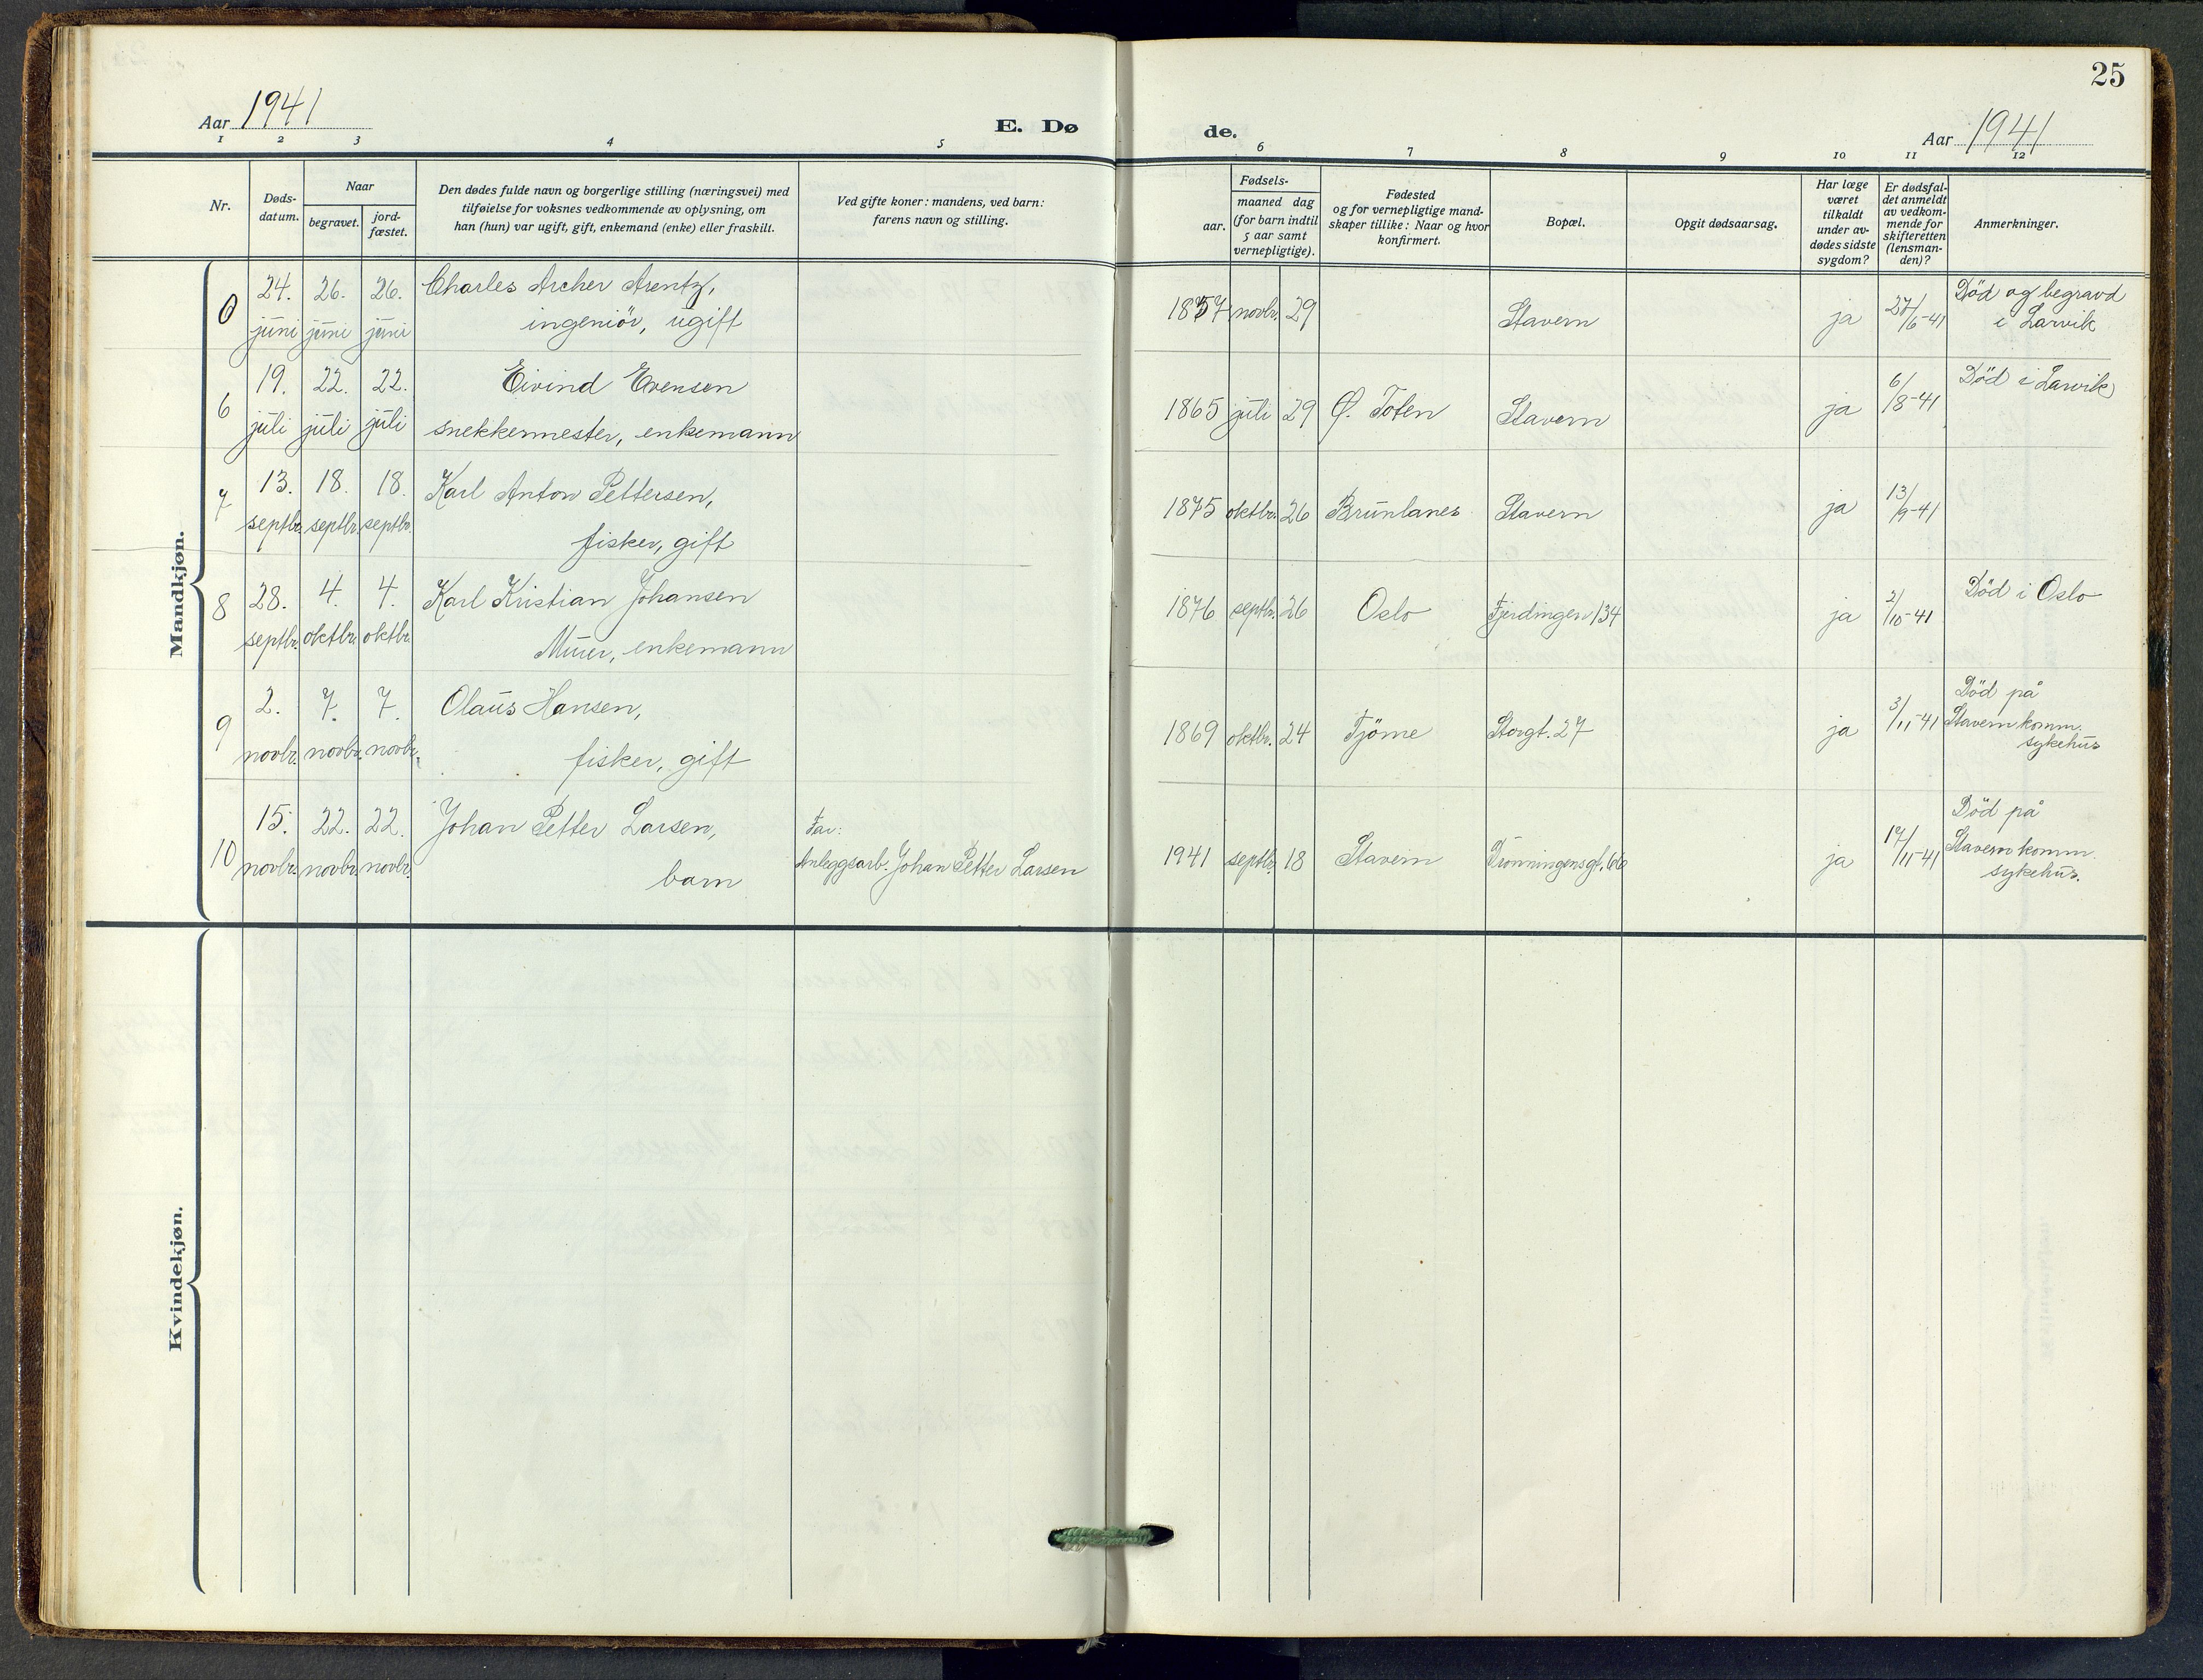 25
Aar 1941
E. Dø
de.
Aar 1941
1 2 3 4 5 6 7 8 9 10 11 12
Nr.
Døds-
datum.
Naar
begravet.
jord-
fæstet.
Den dødes fulde navn og borgerlige stilling (næringsvei) med
tilføielse for voksnes vedkommende av oplysning, om
han (hun) var ugift, gift, enkemand (enke) eller fraskilt.
Ved gifte koner: mandens, ved barn:
farens navn og stilling.
Fødsels-
aar.
maaned dag
(for barn indtil
5 aar samt
vernepligtige).
Fødested
og for vernepligtige mand-
skaper tillike: Naar og hvor
konfirmert.
Bopæl.
Opgit dødsaarsag.
Har læge
været
tilkaldt
under av-
dødes sidste
sygdom?
Er dødsfal-
det anmeldt
av vedkom-
mende for
skifteretten
(lensman-
den)?
Anmerkninger.
Mandkjøn.
0 24. juni 26. juni 26. juni Charles Archer Arentz,
ingeniör, ugift
1857 novbr. 29 Stavern ja 27/6-41 Död og begravd
i Larvik
6 19. juli 22. juli 22. juli Eivind Evensen
snekkermester, enkemann
1865 juli 29 Ø. Toten Stavern ja 6/8-41 Död i Larvik
7 13. septbr. 18. septbr. 18. septbr. Karl Anton Pettersen,
fisker, gift
1875 oktbr. 26 Brunlanes Stavern ja 13/9-41
8 28. septbr. 4. oktbr. 4. oktbr. Karl Kristian Johansen
Murer, enkemann
1876 septbr. 26 Oslo Fjerdingen 134 ja 2/10-41 Död i Oslo
9 2. novbr. 7. novbr. 7. novbr. Olaus Hansen,
fisker, gift
1869 oktbr. 24 Tjöme Storgt. 27 ja 3/11-41 Död på
Stavern komm.
sykehus
10 15. novbr. 22. novbr. 22. novbr. Johan Petter Larsen,
barn
Far:
Anleggsarb. Johan Petter Larsen
1941 septbr. 18 Stavern Dronningensgt. 66 ja 17/11-41 Död på
Stavern komm.
sykehus.
Kvindekjøn.